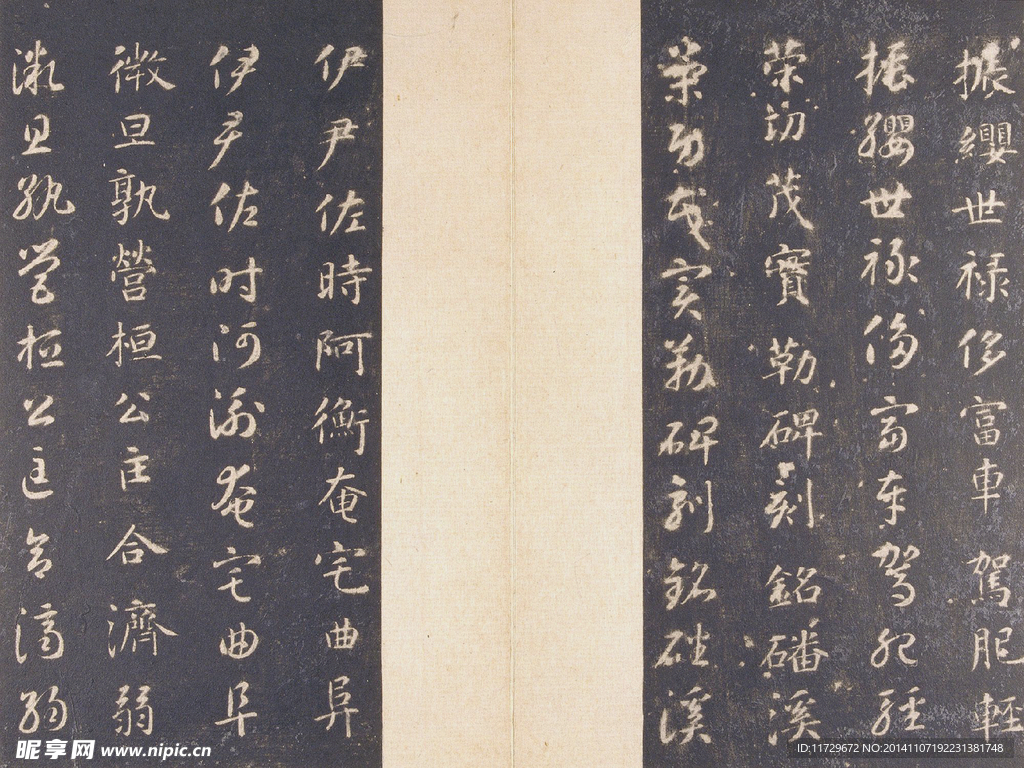 振纓世禄侈富車駕肥輕
振纓世禄侈富車駕肥輕
策功茂實勒碑刻銘磻溪
策功茂實勒碑刻銘磻溪
伊尹佐時阿衡奄宅曲阜
伊尹佐時阿衡奄宅曲阜
微旦孰營桓公匡合濟弱
微旦孰營桓公匡合濟弱
昵享网 www.nipic.cn
ID:11729672 NO:20141107192231381748